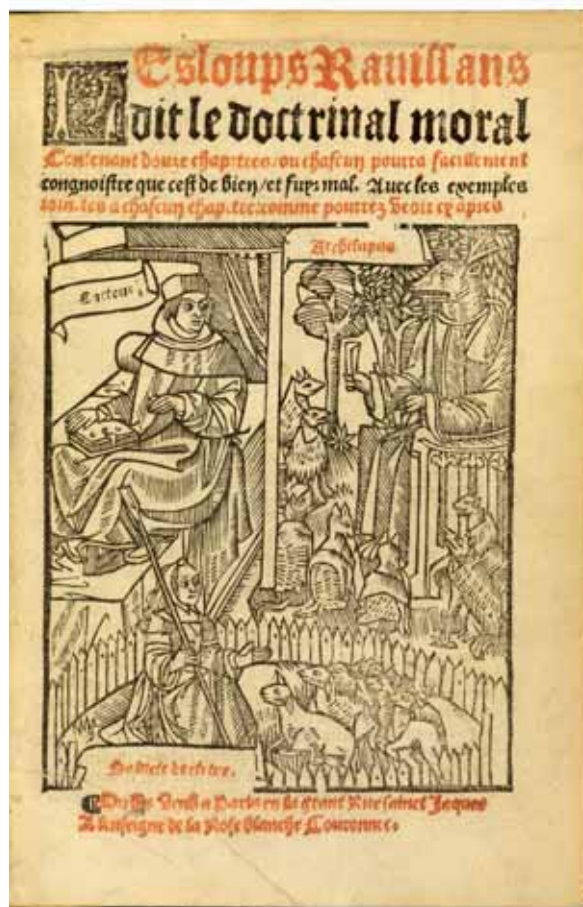 LEsloups Rauissans
dit le doctrinal moral
Contenant douze chapitres/ou chascun pourra facillement
congnoistre que cest de bien/et fuyr mal. Auec les exemples
a chascun comme pourrez veoir cy apres
Lacteur.
Archilupus
Saincte doctrine.
On les vend a Paris en la grant Rue sainct Jaques
A lenseigne de la Rose blanche Couronnee.